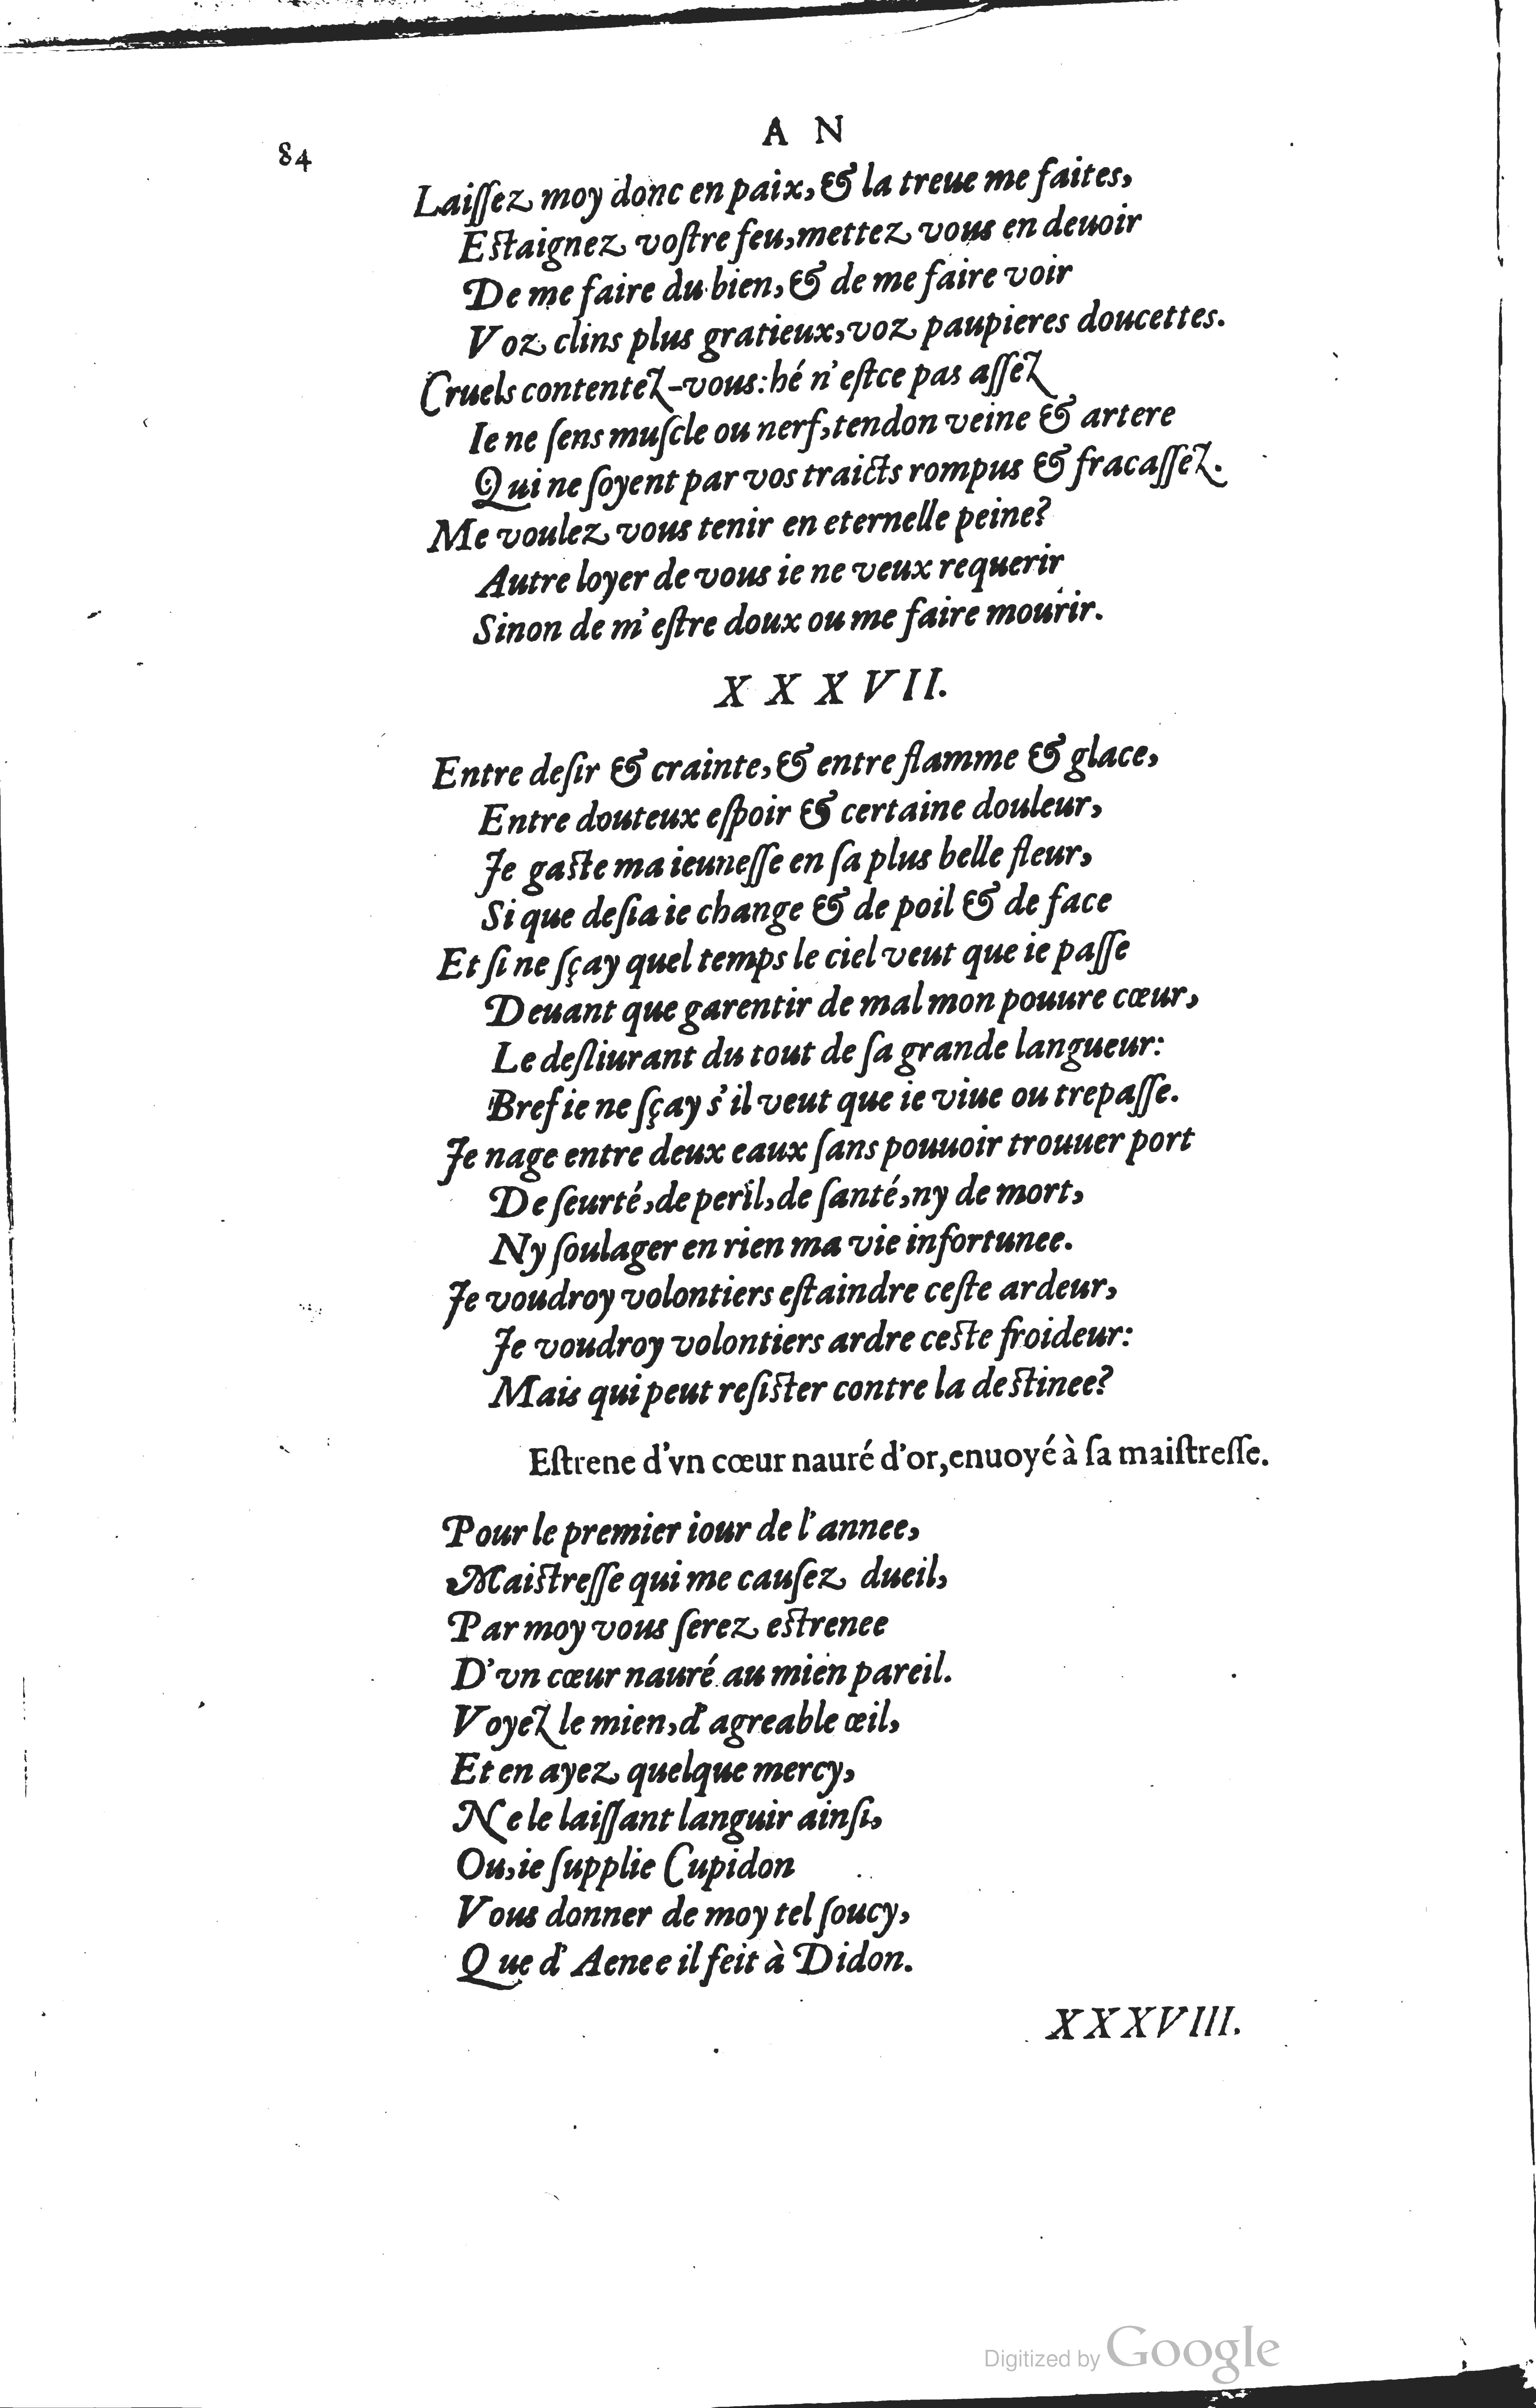 84
A N
Laiſſez moy donc en paix, & la treue me faites,
Eſtaignez voſtre feu, mettez vous en deuoir
De me faire du bien, & de me faire voir
Voz clins plus gratieux, voz paupieres doucettes.
Cruels contentez-vous: hé n'eſtce pas aſſez
Ie ne ſens muſcle ou nerf, tendon veine & artere
Qui ne ſoyent par vos traicts rompus & fracaſſez.
Me voulez vous tenir en eternelle peine?
Autre loyer de vous ie ne veux requerir
Sinon de m'eſtre doux ou me faire mourir.
X X X VII.
Entre deſir & crainte, & entre flamme & glace,
Entre douteux eſpoir & certaine douleur,
Je gaſte ma ieuneſſe en ſa plus belle fleur,
Si que deſia ie change & de poil & de face
Et ſi ne ſçay quel temps le ciel veut que ie paſſe
Deuant que garentir de mal mon pouure cœur,
Le deſliurant du tout de ſa grande langueur:
Bref ie ne ſçay s'il veut que ie viue ou trepaſſe.
Je nage entre deux eaux ſans pouuoir trouuer port
De ſeurté, de peril, de ſanté, ny de mort,
Ny ſoulager en rien ma vie infortunee.
Je voudroy volontiers eſtaindre ceſte ardeur,
Je voudroy volontiers ardre ceſte froideur:
Mais qui peut reſiſter contre la deſtinee?
Eſtrene d'vn cœur nauré d'or, enuoyé à ſa maiſtreſſe.
Pour le premier iour de l'annee,
Maiſtreſſe qui me cauſez dueil,
Par moy vous ſerez eſtrenee
D'vn cœur nauré au mien pareil.
Voyez le mien, d'agreable œil,
Et en ayez quelque mercy,
Ne le laiſſant languir ainſi,
Ou, ie ſupplie Cupidon
Vous donner de moy tel ſoucy,
Que d'Aenee il feit à Didon.
XXXVIII.
Digitized by Google